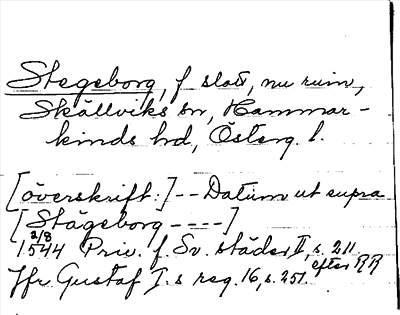 Stegeborg, f slott, nu ruin,
Skällviks sn, Hammar-
kinds hd, Österg. l.
[överskrift:] -- Datum ut supra
[Stägeborg ----]
2/8 1544 Priv. f. Sv. städer II, s. 211. efter RR
Jfr Gustaf I:s reg. 16, s. 251.